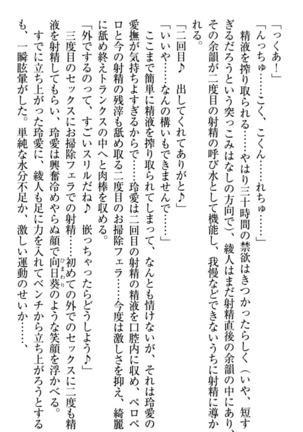 「っくあ！」
「んっちゅ……こく、こくん……れちゅ……」
　精液を搾り取られる……やはり三十時間の禁欲はきつかったらしく（いや、短す
ぎるだろうという突っこみはなしの方向で）、綾人はまだ射精直後の余韻の中にあり、
その余韻が二度目の射精の呼び水として機能し、我慢などできないうちに射精に導か
れる。
「二回目♪　出してくれてありがと♪」
「いいや……なんの構いもできませんで……」
　ここまで簡単に精液を搾り取られてしまって、なんとも情けないが、それは玲愛の
愛撫が気持ちよすぎるからで……玲愛は二回目の射精の精液を口腔内に収め、ペロペ
ロと今の射精の残滓も舐め取る二度目のお掃除フェラ……今度は激しさを抑え、綺麗
に舐め終えトランクスの中へと肉棒を収める。
「外でするのって、すごいスリルだね♪　嵌っちゃったらどうしよう♪」
　三度目のセックスにお掃除フェラでの射精……初めての外でのセックスに二度も精
液を射精してもらい、玲愛は興奮冷めやらぬ顔で向日葵のような笑顔を浮かべる。
　すでに立ち上がった玲愛に、綾人も足に力を入れてベンチから立ち上がろうとする
も、一瞬眩暈がした。単純な水分不足か、激しい運動のせいか……